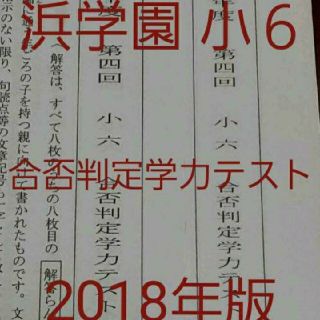 浜学園 小6
合否判定学力テスト
2018年版
年度 第四回 小六 合否判定学力テスト
度 第四回 小六 合否判定学力テスト
解答は、すべて八枚のうちの八枚目の 解答らん
ころの子を持つ親に向けて書かれたものです。文
示のない限り、句読点等の文章記号も一字